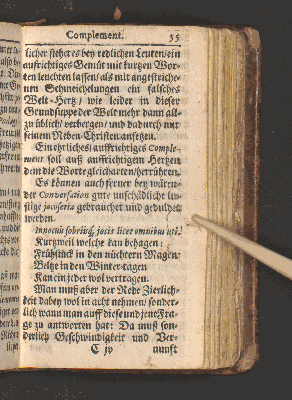 Complement. 35
licher stehet es bey redlichen Leuten/ ein
auffrichtiges Gemüt mit kurtzen Wor-
ten leuchten lassen/ als mit angestriche-
nen Schmeichelungen ein falsches
Welt-Hertz/ wie leider in dieser
Grundsuppe der Welt mehr dann all-
zu üblich/ verbergen/ und dadurch nur
seinem Neben-Christen ansetzen.
Ein ehrliches/ auffrichtiges Comple-
ment soll auß auffrichtigem Hertzen
dem die Worte gleicharten/ herrühren.
Es können auch ferner bey wären-
der Conversation gute unschädliche lu-
stige jocoseria gebrauchet und geduldet
werden.
Innocuis sobriisq; jocis licet omnibus uti.
Kurtzweil welche kan behagen;
Frühstück in den nüchtern Magen;
Beltze in den Winter-tagen
Kan ein jeder wol vertragen.
Man muß aber der Rede Zierlich-
keit dabey wol in acht nehmen/ sonder-
lich wann man auff diese und jene Fra-
ge zu antworten hat: Da muß son-
derlich Geschwindigkeit und Ver-
C iy nunft